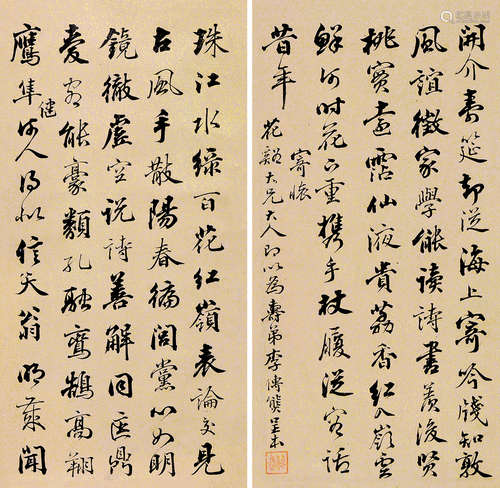 珠江水綠百花紅嶺表論交見
古風手散陽春徧閭黨心如明
鏡徹虛空說詩善解同匡鼎
愛客能豪類孔融鸞鵠高翔
鷹隼健何人得似信天翁朋簪聞
開介壽筵却從海上寄吟牋知敦
風誼徵家學能讀詩書羨後賢
桃實遠霑仙液貴荔香紅入嶺雲
鮮何時花下重攜手杖履從容話
昔年
寄懷
花谿大兄大人即以為壽弟李傳熊呈